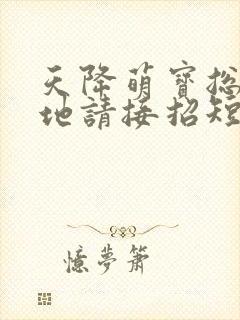 天降萌寶總
地請接招短
憶夢簫